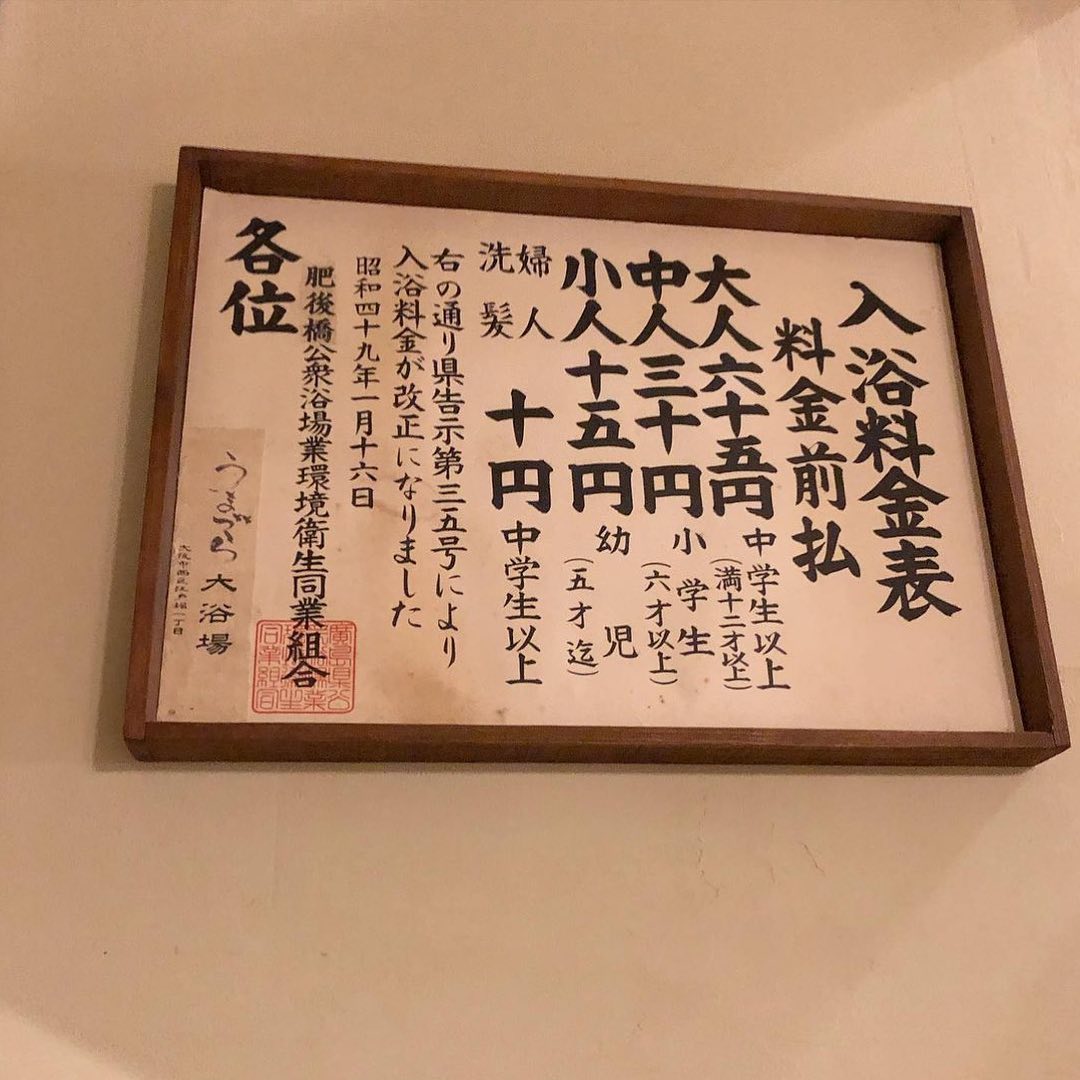 入浴料金表
料金前払
大人六十五円 中学生以上
(満十二才以上)
中人三十円 小学生
(六才以上)
小人十五円 幼児
(五才迄)
婦人
洗髪 十円 中学生以上
右の通り県告示第三五号により
入浴料金が改正になりました
昭和四十九年一月十六日
肥後橋公衆浴場業環境衛生同業組合
各位
大浴場